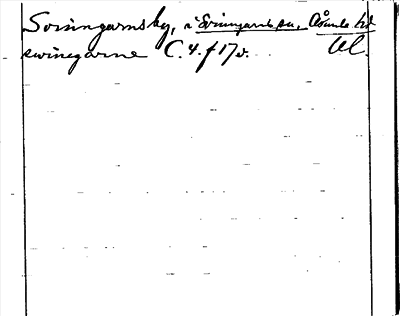 Svinngarnsby, i Svinngarns sn, Åsunda hd
swinegarne C. 4. f 17 v. Ul.